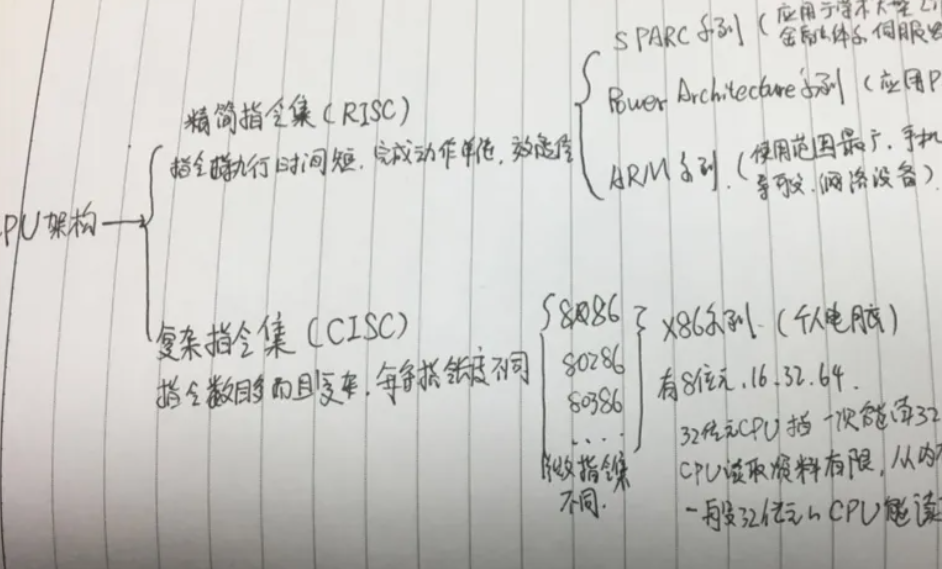 PU架构
精简指令集(RISC)
指令执行时间短,完成动作单纯,效能佳
SPARC系列(应用于学术大型
金融体系伺服
Power Architecture系列(应用P
ARM系列.(使用范围最广.手机
导航.网络设备)
复杂指令集(CISC)
指令数目多而且复杂,每条指令长度不同
8086
80286
80386
....
微指令集
不同.
X86系列.(个人电脑)
有8位元.16.32.64.
32位元CPU指一次能读32
CPU读取资料有限,从内
一般32位元的CPU能读